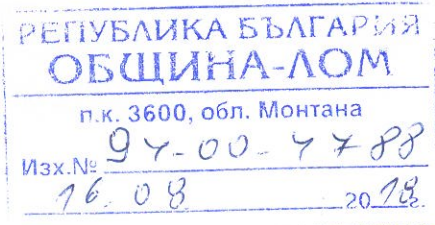 РЕПУБЛИКА БЪЛГАРИЯ
ОБЩИНА-ЛОМ
п.к. 3600, обл. Монтана
Изх.№ 94-00-4788
16.08 2018г.